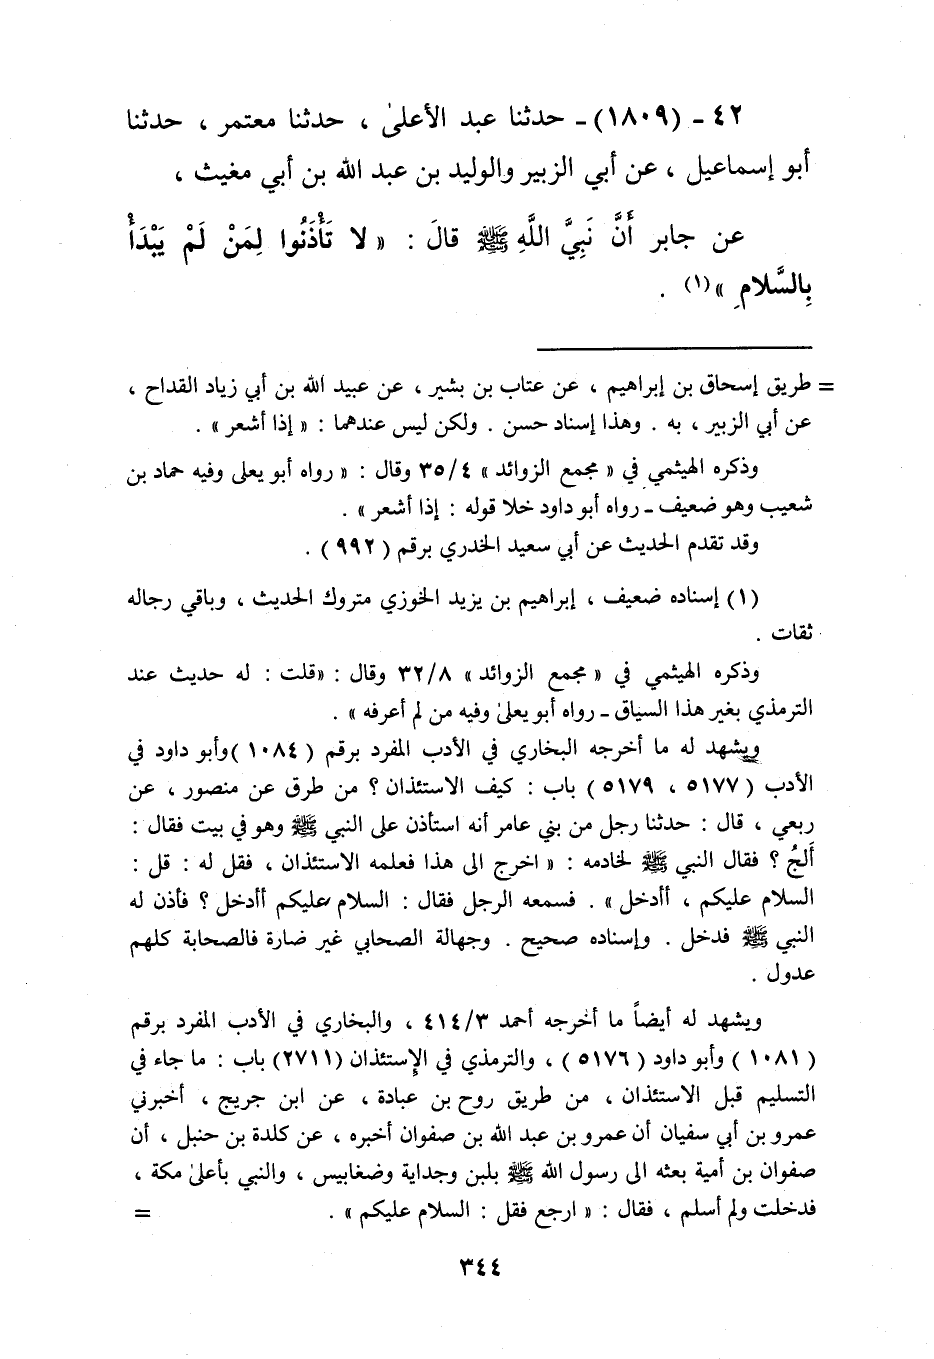 ٤٢ - (١٨٠٩) - حدثنا عبد الأعلىٰ ، حدثنا معتمر ، حدثنا
أبو إسماعيل ، عن أبي الزبير والوليد بن عبد الله بن أبي مغيث ،
عن جابر أَنَّ نَبِيَّ اللَّهِ ﷺ قالَ : « لا تَأْذَنُوا لِمَنْ لَمْ يَبْدَأْ
بِالسَّلامِ »(١) .
= طريق إسحاق بن إبراهيم ، عن عتاب بن بشير ، عن عبيد الله بن أبي زياد القداح ،
عن أبي الزبير ، به . وهذا إسناد حسن . ولكن ليس عندهما : « إذا أشعر » .
وذكره الهيثمي في « مجمع الزوائد » ٣٥/٤ وقال : « رواه أبو يعلى وفيه حماد بن
شعيب وهو ضعيف - رواه أبو داود خلا قوله : إذا أشعر » .
وقد تقدم الحديث عن أبي سعيد الخدري برقم ( ٩٩٢ ) .
(١) إسناده ضعيف ، إبراهيم بن يزيد الخوزي متروك الحديث ، وباقي رجاله
ثقات .
وذكره الهيثمي في « مجمع الزوائد » ٣٢/٨ وقال : «قلت : له حديث عند
الترمذي بغير هذا السياق - رواه أبو يعلىٰ وفيه من لم أعرفه » .
ويشهد له ما أخرجه البخاري في الأدب المفرد برقم ( ١٠٨٤ )وأبو داود في
الأدب ( ٥١٧٧ ، ٥١٧٩ ) باب : كيف الاستئذان ؟ من طرق عن منصور ، عن
ربعي ، قال : حدثنا رجل من بني عامر أنه استأذن على النبي ﷺ وهو في بيت فقال :
أَلجُ ؟ فقال النبي ﷺ لخادمه : « اخرج الى هذا فعلمه الاستئذان ، فقل له : قل :
السلام عليكم ، أأدخل » . فسمعه الرجل فقال : السلام عليكم أأدخل ؟ فأذن له
النبي ﷺ فدخل . وإسناده صحيح . وجهالة الصحابي غير ضارة فالصحابة كلهم
عدول .
ويشهد له أيضاً ما أخرجه أحمد ٤١٤/٣ ، والبخاري في الأدب المفرد برقم
( ١٠٨١ ) وأبو داود ( ٥١٧٦ ) ، والترمذي في الإستئذان (٢٧١١) باب : ما جاء في
التسليم قبل الاستئذان ، من طريق روح بن عبادة ، عن ابن جريج ، أخبرني
عمرو بن أبي سفيان أن عمرو بن عبد الله بن صفوان أخبره ، عن كلدة بن حنبل ، أن
صفوان بن أمية بعثه الى رسول الله ﷺ بلبن وجداية وضغابيس ، والنبي بأعلىٰ مكة ،
فدخلت ولم أسلم ، فقال : « ارجع فقل : السلام عليكم » . =
٣٤٤